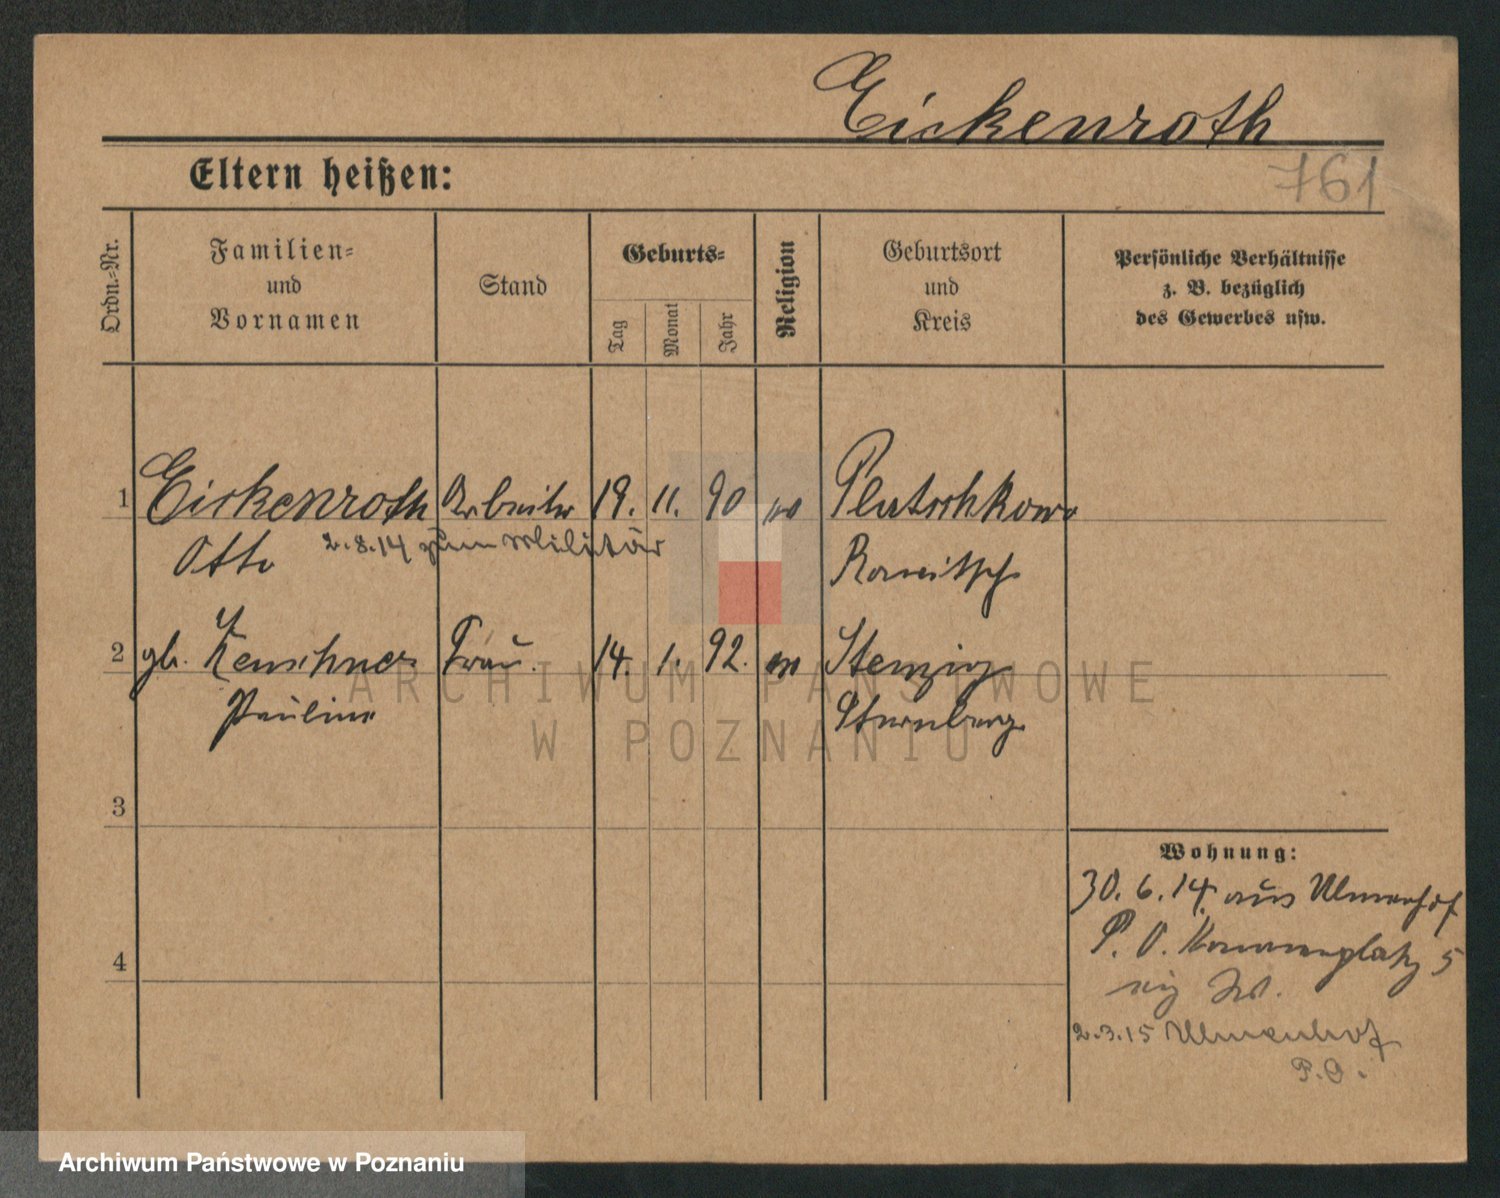 Eickenroth
761
Eltern heißen:
Ordn.=Nr.
Familien=
und
Vornamen
Stand
Geburts=
Tag
Monat
Jahr
Religion
Geburtsort
und
Kreis
Persönliche Verhältnisse
z. B. bezüglich
des Gewerbes usw.
1 Eickenroth Arbeiter 19. 11. 90
Otto 2.8.14 zum Militär Rawitsch
2 gb. Frau. 14. 1. 92.
Pauline Sternberg
ARCHIWUM PAŃSTWOWE
W POZNANIU
3
4
Wohnung:
30. 6. 14. aus Ulmenhof
P. O. 5
2.3.15 Ulmenhof
P.O.
Archiwum Państwowe w Poznaniu